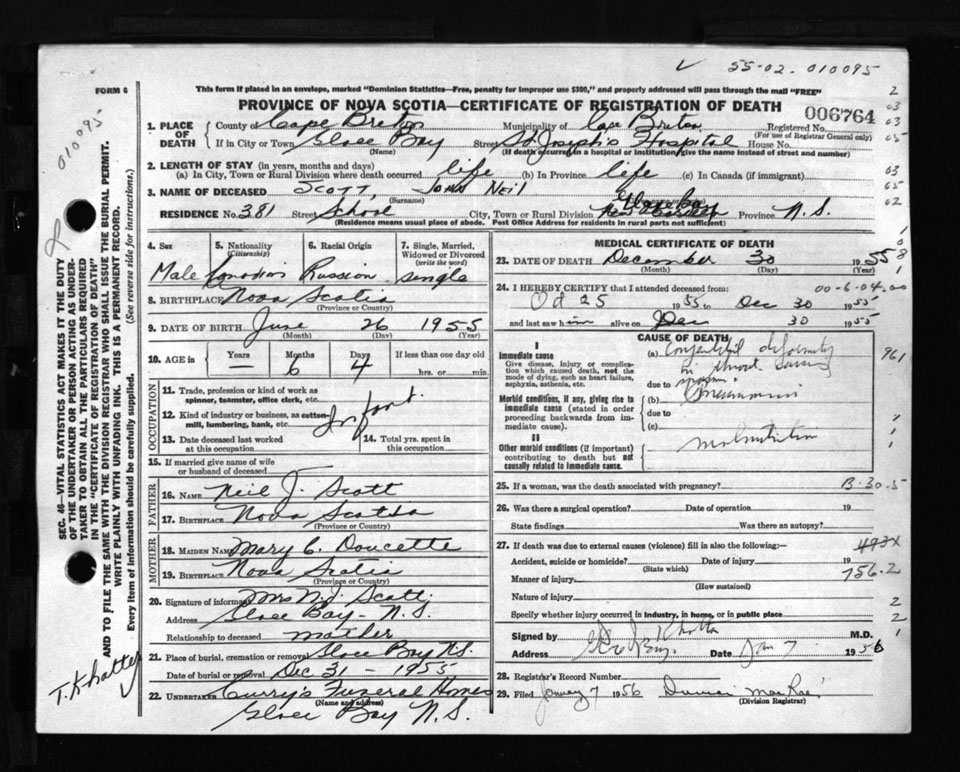 √ 55-02-010095
FORM 6
This form if placed in an envelope, marked "Dominion Statistics—Free, penalty for improper use $300," and properly addressed will pass through the mail "FREE"
PROVINCE OF NOVA SCOTIA—CERTIFICATE OF REGISTRATION OF DEATH
006764
1. PLACE OF DEATH County of Cape Breton Municipality of Cape Breton Registered No.
(For use of Registrar General only)
If in City or Town Glace Bay Street St Joseph's Hospital House No.
(Name) (If death occurred in a hospital or institution, give the name instead of street and number)
2. LENGTH OF STAY (in years, months and days)
(a) In City, Town or Rural Division where death occurred life (b) In Province life (c) In Canada (if immigrant)
3. NAME OF DECEASED Scott, John Neil
(Surname)
RESIDENCE No. 381 Street School City, Town or Rural Division Province N.S.
(Residence means usual place of abode. Post Office Address for residents in rural parts not sufficient)
4. Sex Male
5. Nationality (Citizenship) Canadian
6. Racial Origin Russian
7. Single, Married, Widowed or Divorced (write the word) single
8. BIRTHPLACE Nova Scotia
(Province or Country)
9. DATE OF BIRTH June 26 1955
(Month) (Day) (Year)
10. AGE in Years — Months 6 Days 4 If less than one day old
hrs. or min.
OCCUPATION
11. Trade, profession or kind of work as spinner, teamster, office clerk, etc.
12. Kind of industry or business, as cotton mill, lumbering, bank, etc. Infant
13. Date deceased last worked at this occupation
14. Total yrs. spent in this occupation
15. If married give name of wife or husband of deceased
FATHER
16. NAME Neil J. Scott
17. BIRTHPLACE Nova Scotia
(Province or Country)
MOTHER
18. MAIDEN NAME Mary C. Doucette
19. BIRTHPLACE Nova Scotia
(Province or Country)
20. Signature of informant Mrs N.J. Scott
Address Glace Bay - N.S.
Relationship to deceased mother
21. Place of burial, cremation or removal Glace Bay N.S.
Date of burial or removal Dec 31 - 1955
22. UNDERTAKER Curry's Funeral Homes
(Name and address)
Glace Bay N.S.
MEDICAL CERTIFICATE OF DEATH
23. DATE OF DEATH December 30 1955
(Month) (Day) (Year)
24. I HEREBY CERTIFY that I attended deceased from: 00-6-04.00
Oct 25 1955 to Dec 30 1955
and last saw him alive on Dec 30 1955
CAUSE OF DEATH
I
Immediate cause
Give disease, injury or complication which caused death, not the mode of dying, such as heart failure, asphyxia, asthenia, etc.
(a) Congenital deformity in throat causing
due to
Morbid conditions, if any, giving rise to immediate cause (stated in order proceeding backwards from immediate cause).
(b) Pneumonia
due to
(c)
II
Other morbid conditions (if important) contributing to death but not causally related to immediate cause.
malnutrition
961
25. If a woman, was the death associated with pregnancy? B-30.5
26. Was there a surgical operation? Date of operation 19
State findings Was there an autopsy?
27. If death was due to external causes (violence) fill in also the following:—
493X
Accident, suicide or homicide? Date of injury 19
(State which)
756.2
Manner of injury
(How sustained)
Nature of injury
Specify whether injury occurred in industry, in home, or in public place
Signed by Khatter M.D.
Address Gl Bay Date Jan 7 1956
28. Registrar's Record Number
29. Filed January 7 1956 MacRae
(Division Registrar)
010095
SEC. 46—VITAL STATISTICS ACT MAKES IT THE DUTY OF THE UNDERTAKER OR PERSON ACTING AS UNDERTAKER TO OBTAIN ALL THE PARTICULARS REQUIRED IN THE "CERTIFICATE OF REGISTRATION OF DEATH" AND TO FILE THE SAME WITH THE DIVISION REGISTRAR WHO SHALL ISSUE THE BURIAL PERMIT.
(See reverse side for instructions.)
WRITE PLAINLY WITH UNFADING INK. THIS IS A PERMANENT RECORD.
Every item of information should be carefully supplied.
T. Khatter